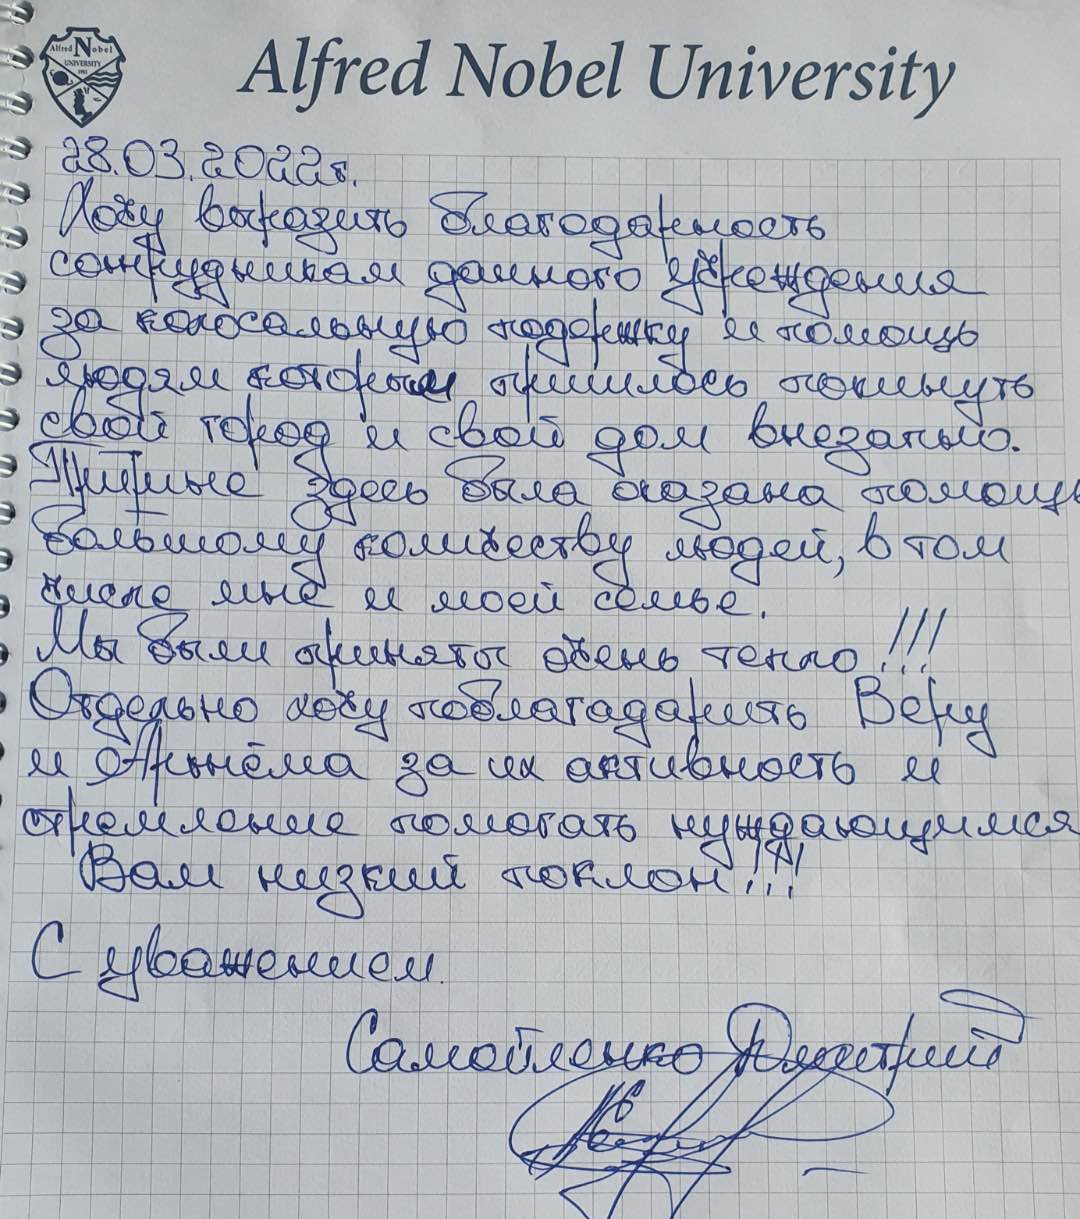 Alfred Nobel
UNIVERSITY
Alfred Nobel University
28.03.2022г.
Хочу выразить благодарность
сотрудникам данного учреждения
за колосальную подержку и помощь
людям которым пришлось покинуть
свой город и свой дом внезапно.
Здесь была оказана помощь
большому количеству людей, в том
числе мне и моей семье.
Мы были приняты очень тепло!!!
Отдельно хочу поблагадарить Веру
и Артёма за их активность и
стремление помогать нуждающимся
Вам низкий поклон!!!
С уважением.
Самойленко Дмитрий